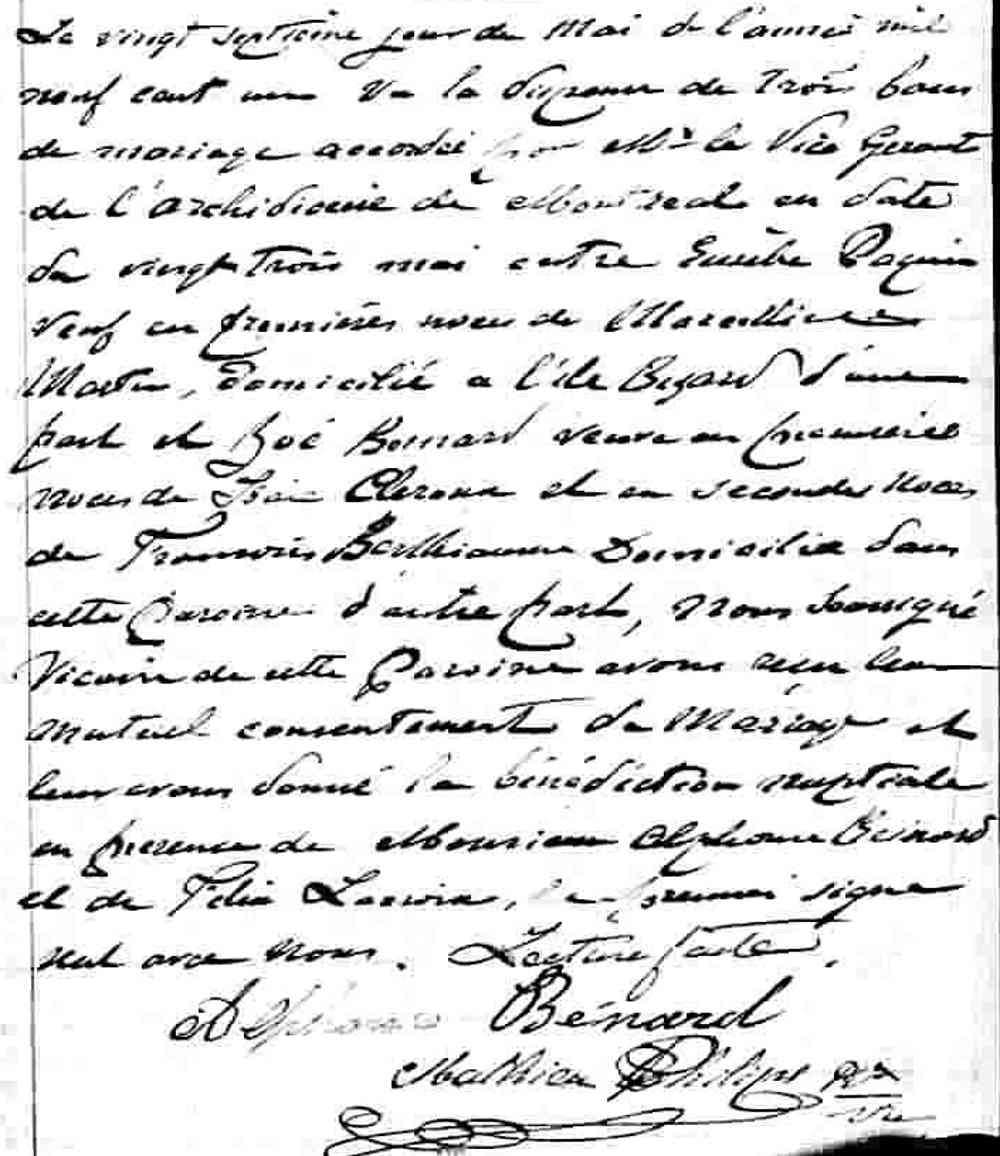 Le vingt septième jour de Mai de l'année mil
neuf cent un Vu la dispense de trois bans
de mariage accordée par Mr le Vice Gérant
de l'Archidiocèse de Montréal en date
du vingt trois mai entre Eusèbe Paquin
veuf en premières noces de Marcelline
Martin, domicilié a l'ile Bizard d'une
part et Zoé Bénard veuve en premières
noces de Cléroux et en secondes noces
de François Berthiaume Domicilié dans
cette Paroisse d'autre part, Nous soussigné
Vicaire de cette Paroisse avons reçu leur
mutuel consentement de Mariage et
leur avons donné la bénédiction nuptiale
en présence de Monsieur Alphonse Bénard
et de Félix, le premier signe
seul avec nous. Lecture faite.
Alphonse Bénard
Mathieu Philips Ptre
Vic